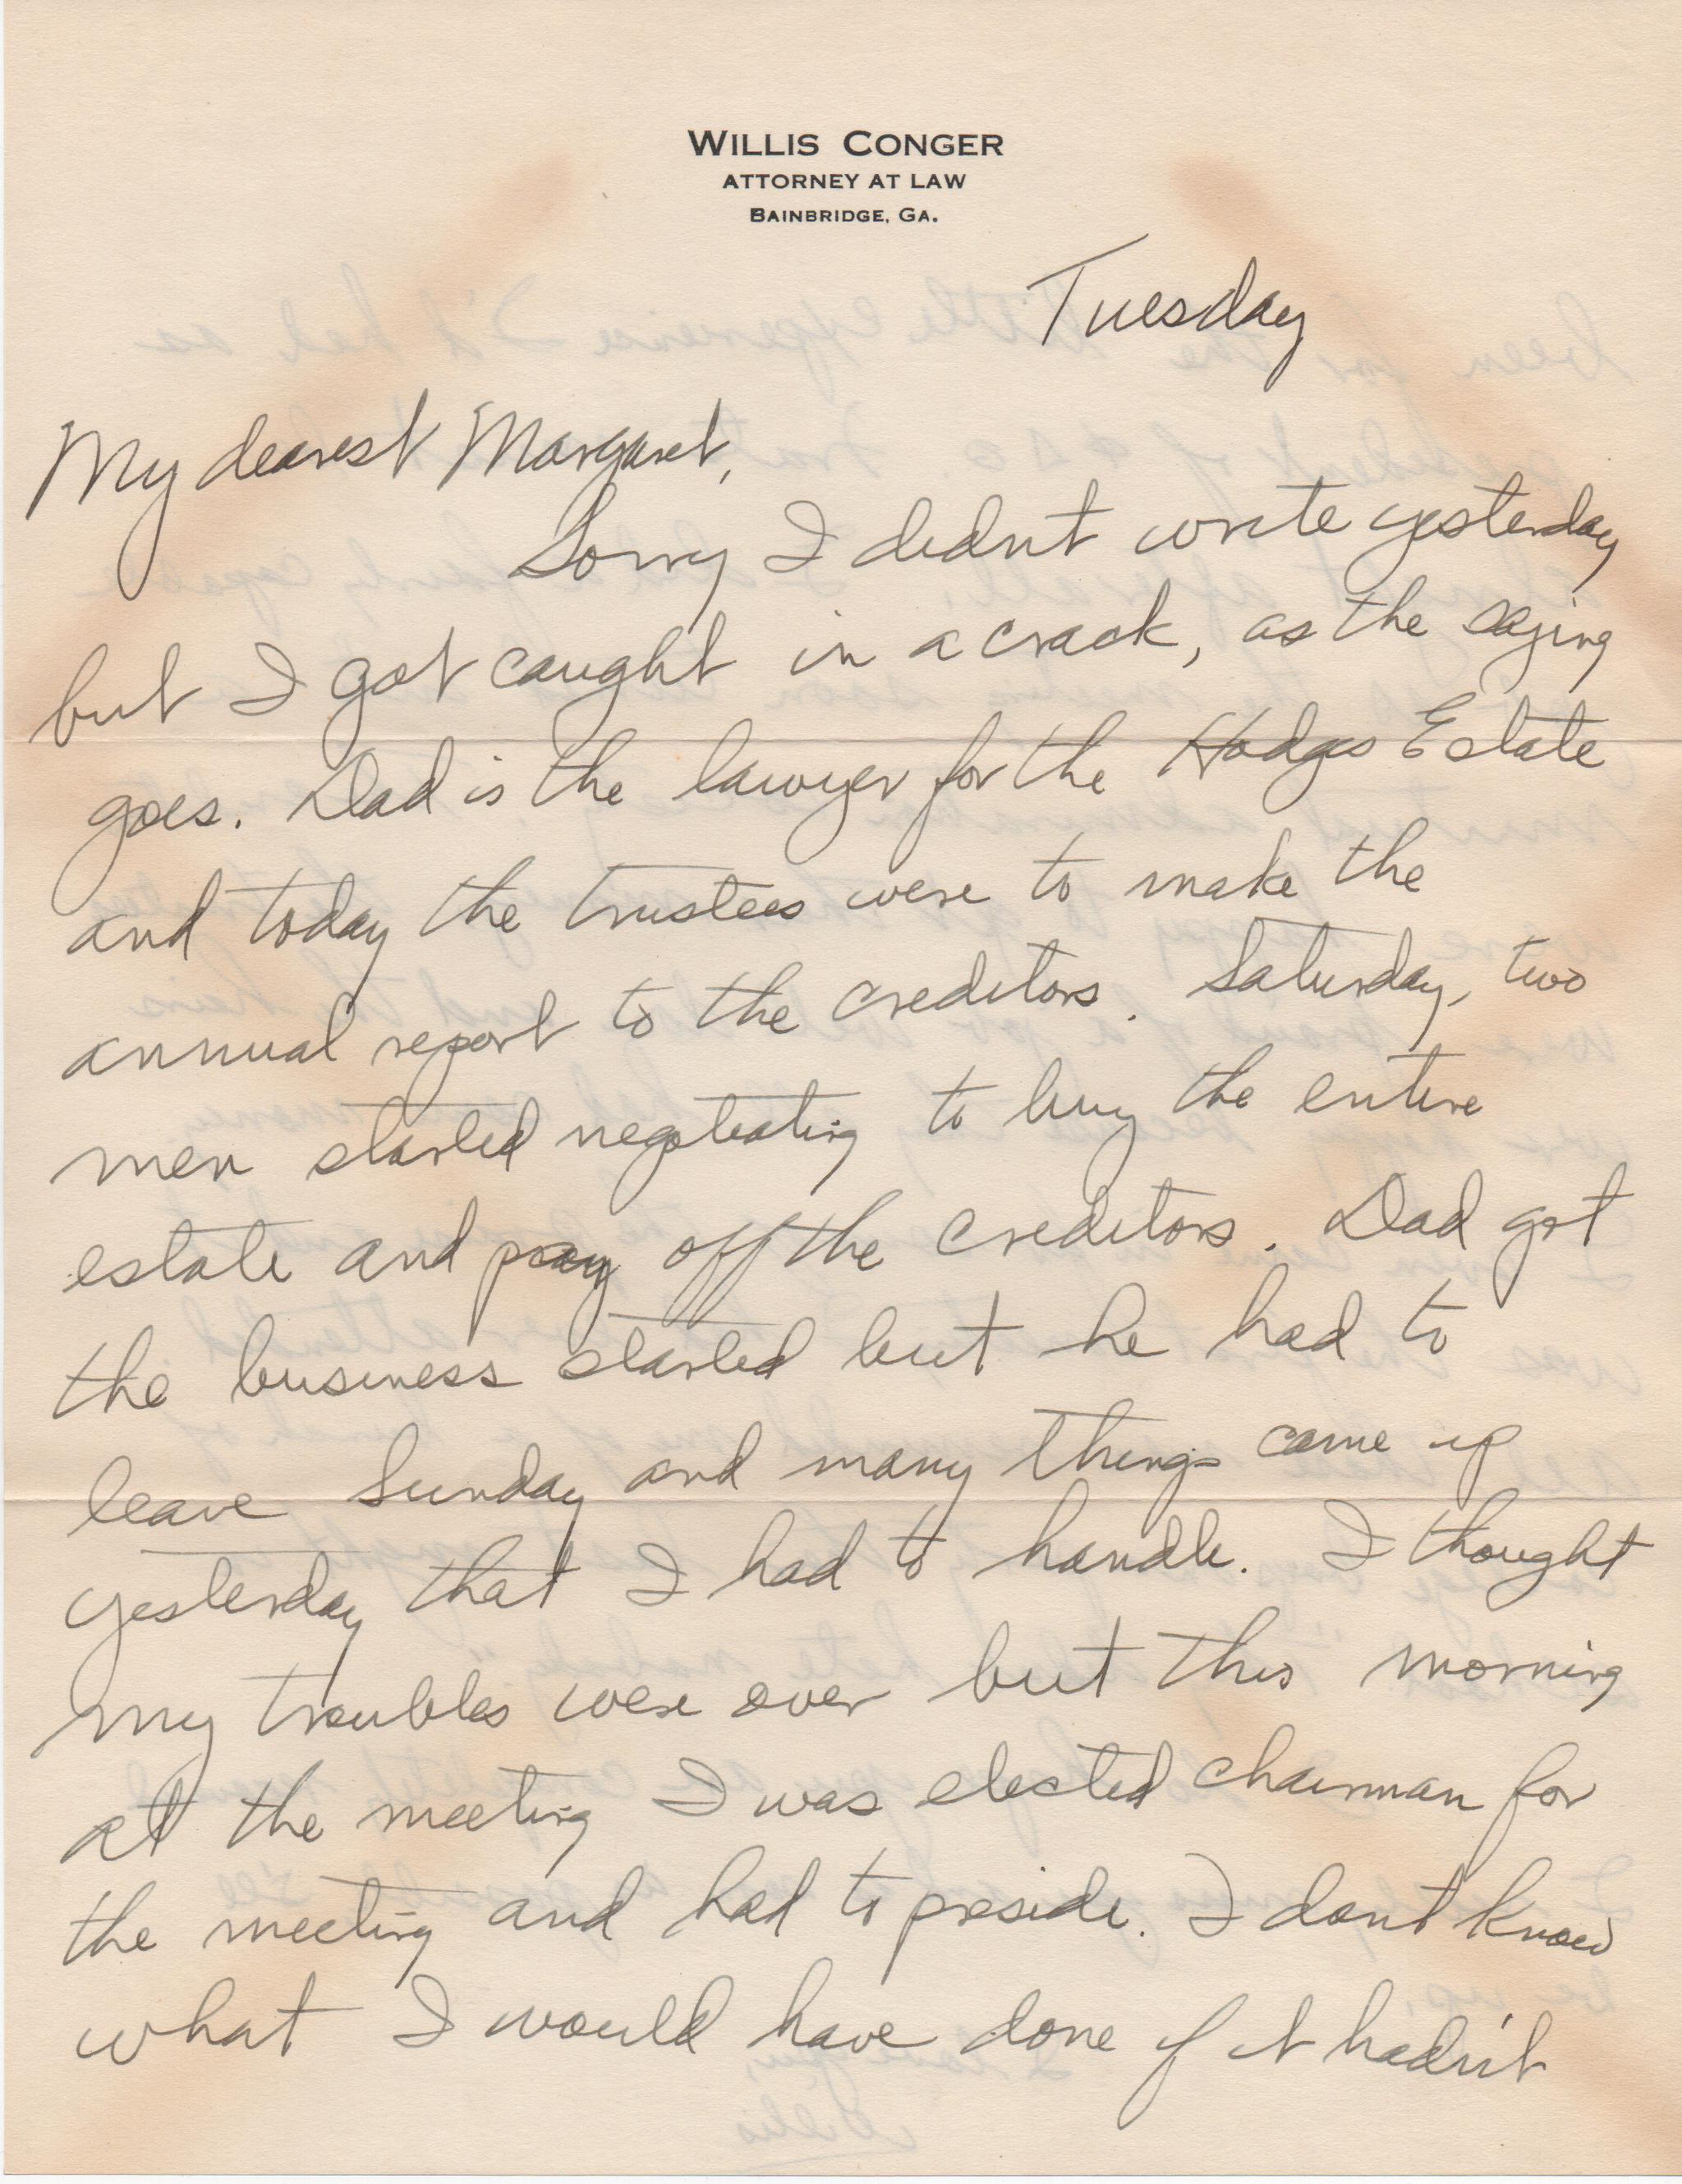 WILLIS CONGER
ATTORNEY AT LAW
BAINBRIDGE, GA.
Tuesday
My dearest Margaret,
Sorry I didn't write yesterday
but I got caught in a crack, as the saying
goes. Dad is the lawyer for the Hodges Estate
and today the trustees were to make the
annual report to the creditors. Saturday, two
men started negotiating to buy the entire
estate and pay off the creditors. Dad got
the business started but he had to
leave Sunday and many things came up
yesterday that I had to handle. I thought
my troubles were over but this morning
at the meeting I was elected chairman for
the meeting and had to preside. I dont know
what I would have done if it hadn't